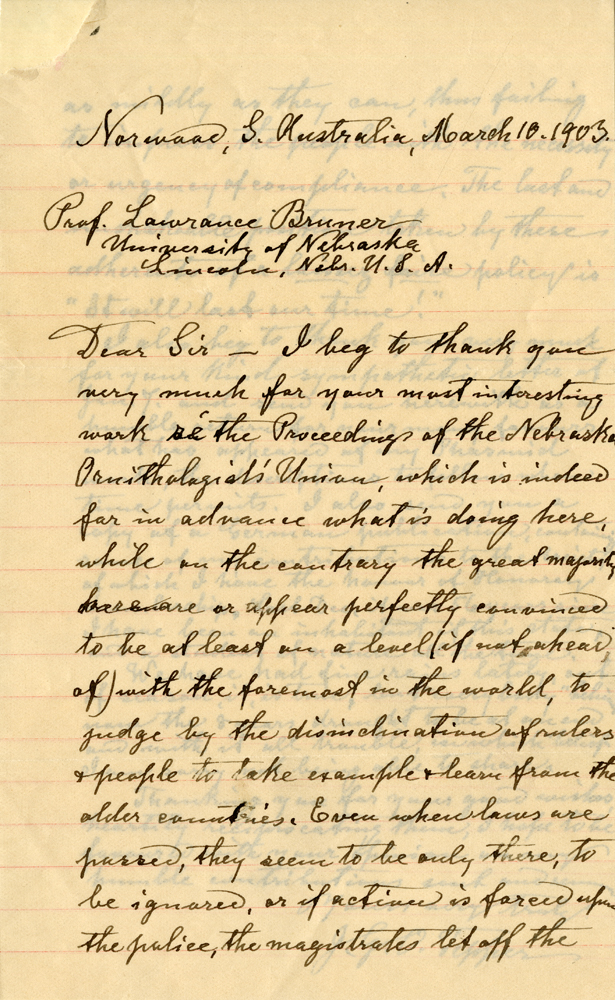 Norwood, S. Australia, March 10. 1903.
Prof. Lawrance Bruner
University of Nebraska
Lincoln, Nebr. U. S. A.
Dear Sir — I beg to thank you
very much for your most interesting
work re the Proceedings of the Nebraska
Ornithologist's Union, which is indeed
far in advance what is doing here,
while on the contrary the great majority
are or appear perfectly convinced
to be at least on a level (if not ahead
of) with the foremost in the world, to
judge by the disinclination of rulers
& people to take example & learn from the
older countries. Even when laws are
passed, they seem to be only there, to
be ignored, or if action is forced upon
the police, the magistrates let off the